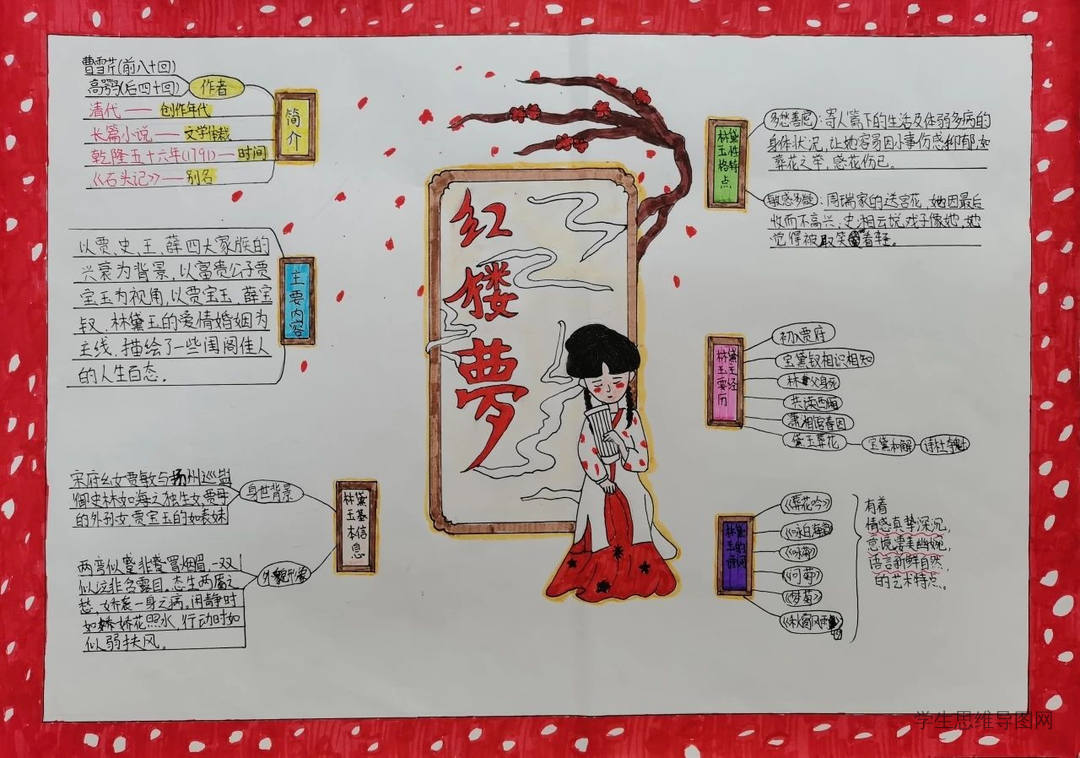 曹雪芹(前八十回)
高鹗(后四十回)
作者
清代——创作年代
长篇小说——文学体裁
乾隆五十六年(1791)—时间
《石头记》——别名
简介
以贾、史、王、薛四大家族的
兴衰为背景,以富贵公子贾
宝玉为视角,以贾宝玉、薛宝
钗、林黛玉的爱情婚姻为
主线,描绘了一些闺阁佳人
的人生百态。
主要内容
荣府幺女贾敏与扬州巡盐
御史林如海之独生女,贾母
的外孙女,贾宝玉的姑表妹
身世背景
两弯似蹙非蹙罥烟眉,一双
似泣非含露目。态生两靥之
愁,娇袭一身之病。闲静时
如娇花照水,行动时如
似弱扶风。
外貌形象
林黛玉基本信息
红楼梦
林黛玉性格特点
多愁善感:寄人篱下的生活及体弱多病的
身体状况,让她容易因小事伤感抑郁,如
葬花之举,惹花伤己。
敏感多疑:周瑞家的送宫花,她因最后
收而不高兴;史湘云说戏子像她,她
觉得被取笑
林黛玉主要经历
初入贾府
宝黛钗相识相知
林父身死
共读西厢
潇湘馆春困
黛玉葬花
宝黛和解
诗社
林黛玉的诗词
《葬花吟》
《咏白海棠》
《咏菊》
《问菊》
《梦菊》
《秋窗风雨夕》
有着
情感真挚深沉,
意境凄美幽婉,
语言新鲜自然,
的艺术特点。
学生思维导图网